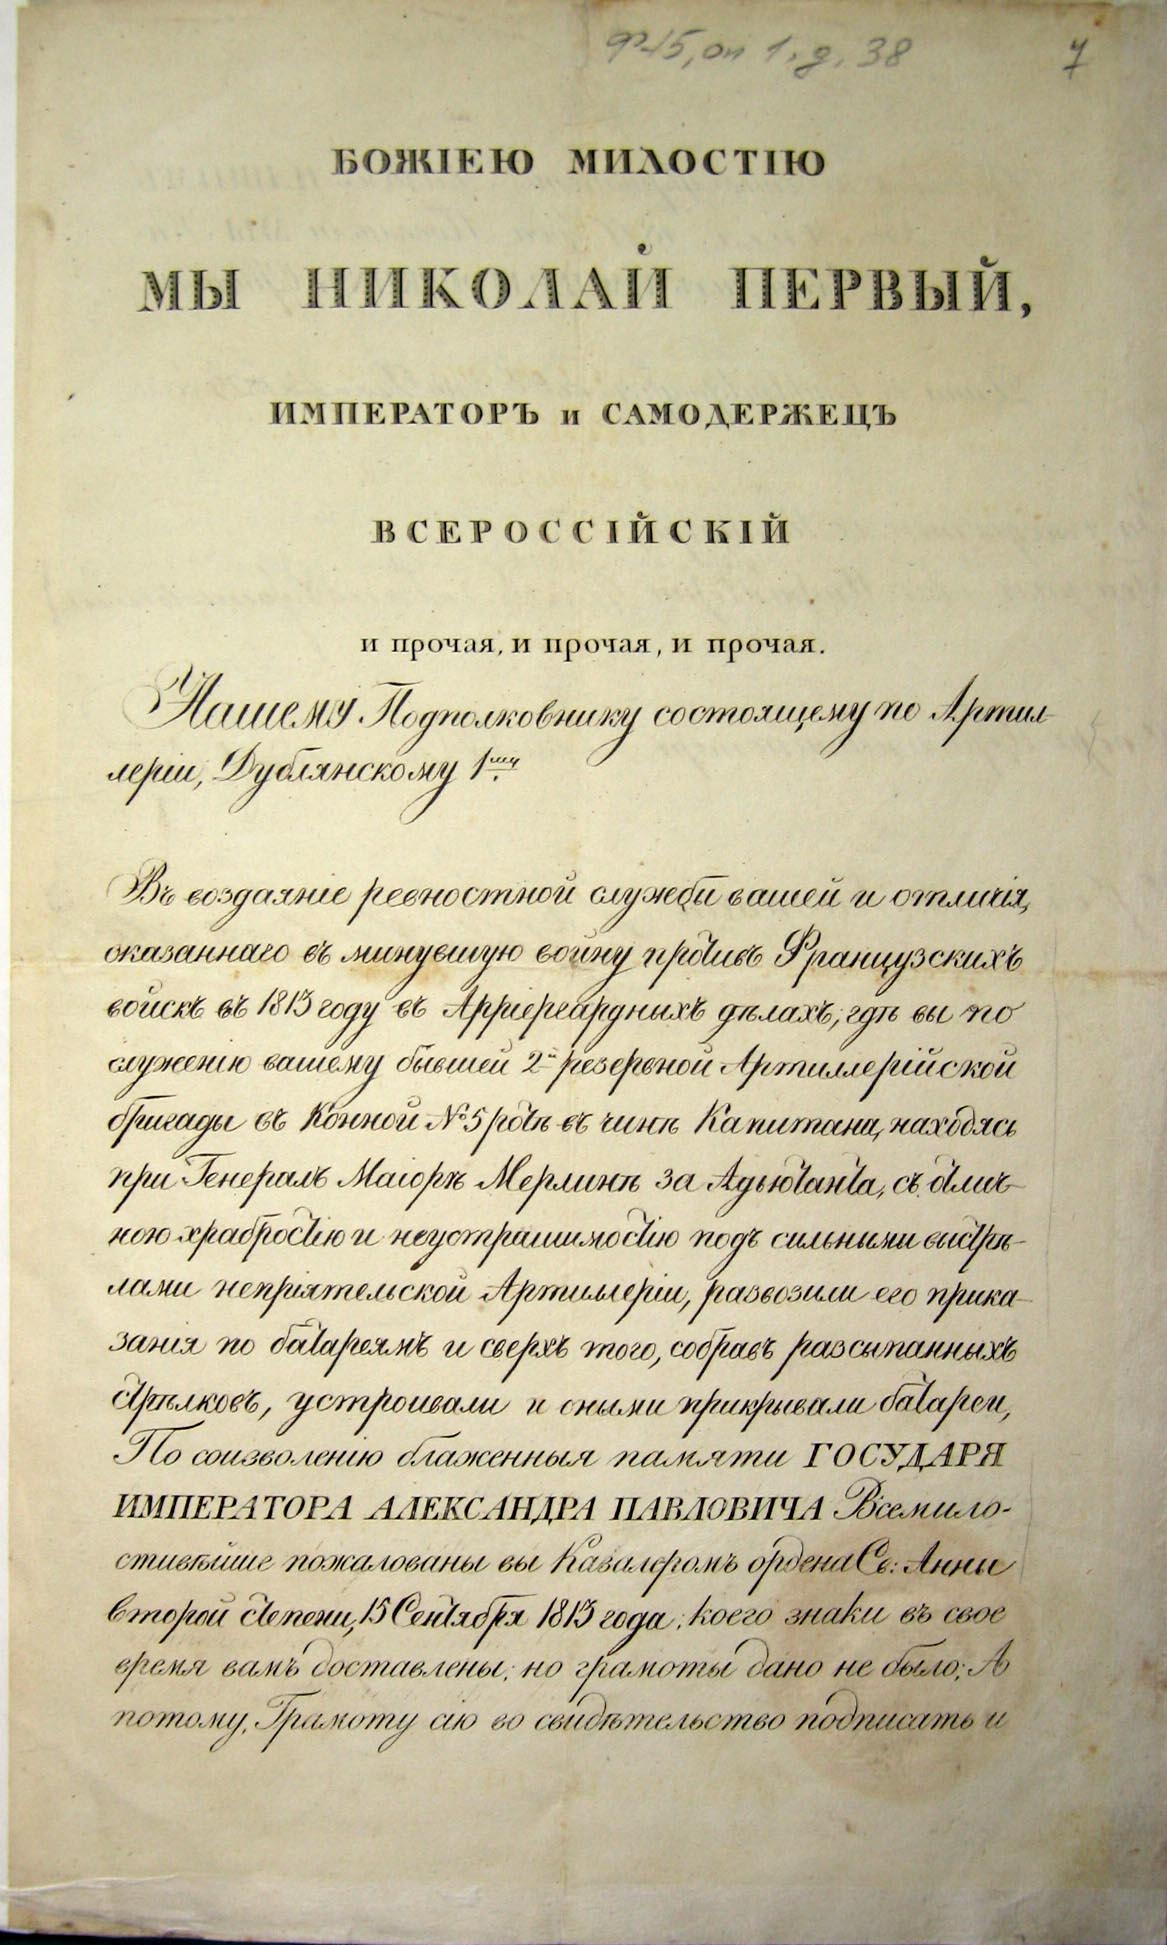 Ф-15, оп 1, д. 38
7
БОЖІЕЮ МИЛОСТІЮ
МЫ НИКОЛАЙ ПЕРВЫЙ,
ИМПЕРАТОРЪ и САМОДЕРЖЕЦЪ
ВСЕРОССІЙСКІЙ
и прочая, и прочая, и прочая.
Нашему Подполковнику состоящему по Артил-
леріи, Дублянскому 1му
Въ воздаяніе ревностной службы вашей и отличія,
оказаннаго въ минувшую войну противъ Французскихъ
войскъ въ 1813 году въ Арріергардныхъ дѣлахъ, гдѣ вы по
служенію вашему бывшей 2й резервной Артиллерійской
бригады въ Конной №5 ротѣ въ чинѣ Капитана, находясь
при Генералъ Маіорѣ Мерлинѣ за Адьютанта, съ отлич-
ною храбростію и неустрашимостію подъ сильными выстрѣ-
лами непріятельской Артиллеріи, развозили его прика-
занія по батареямъ и сверхъ того, собравъ разсыпанныхъ
стрѣлковъ, устроивали и оными прикрывали батареи,
По соизволенію блаженныя памяти ГОСУДАРЯ
ИМПЕРАТОРА АЛЕКСАНДРА ПАВЛОВИЧА Всемило-
стивѣйше пожалованы вы Кавалеромъ ордена Св: Анны
второй степени, 15 Сентября 1813 года; коего знаки въ свое
время вамъ доставлены; но грамоты дано не было; А
потому, Грамоту сію во свидѣтельство подписать и